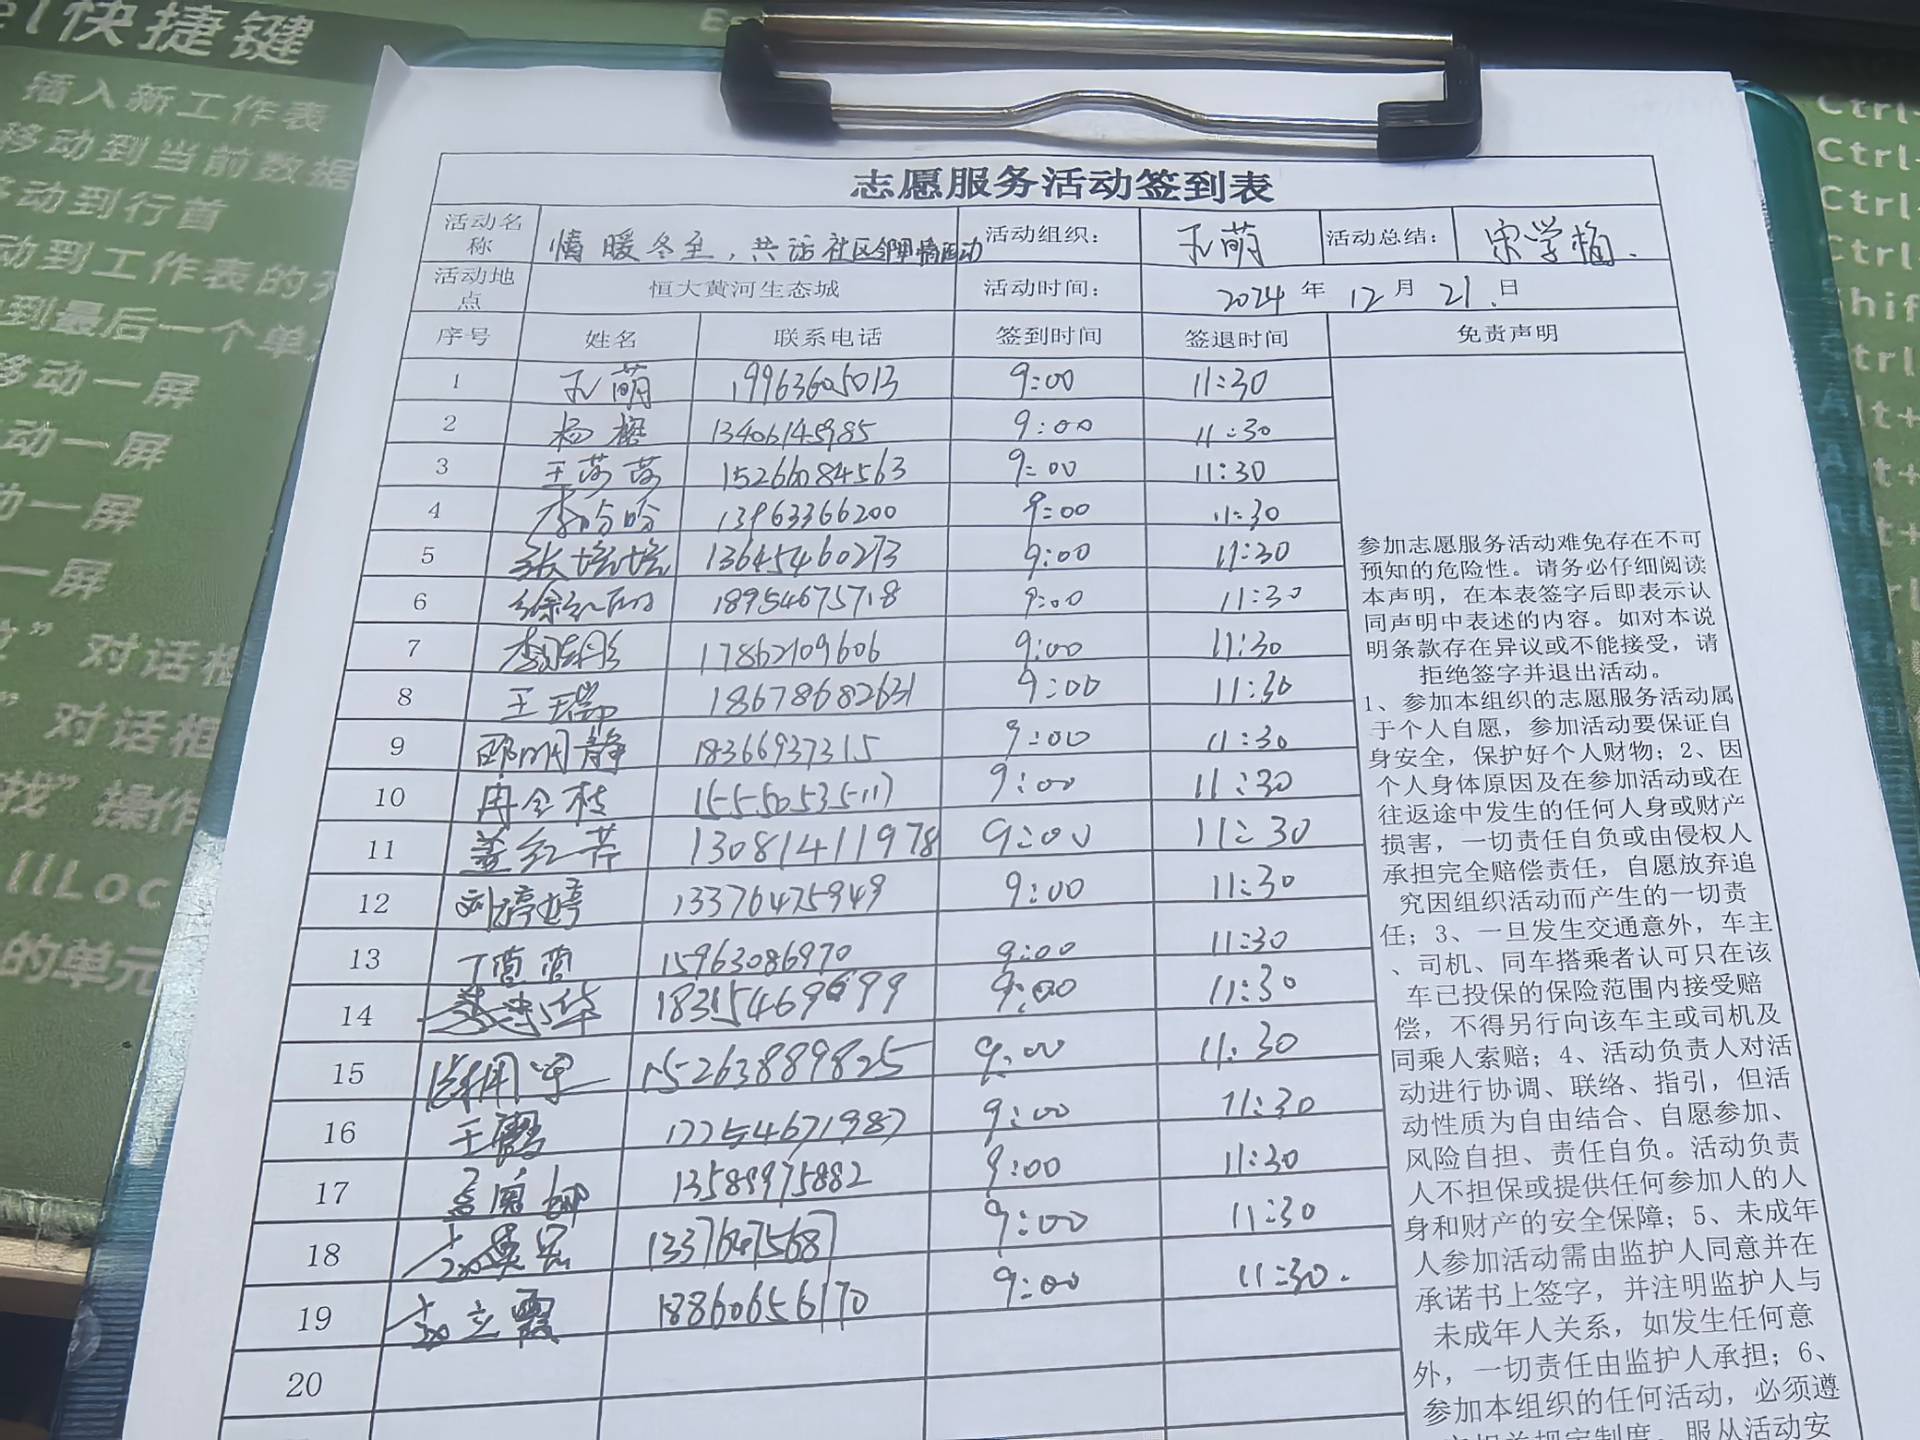 快捷键
插入新工作表
移动到当前数据
动到行首
动到工作表的
到最后一个单
移动一屏
动一屏
动一屏
一屏
”对话框
”对话框
找”操作
llLoc
的单元
Ctrl
Ctrl
Ctrl
Ctrl
Shif
志愿服务活动签到表
活动名称 情暖冬至,共话社区邻里情活动 活动组织: 孔萌 活动总结: 宋学梅.
活动地点 恒大黄河生态城 活动时间: 2024 年 12 月 21. 日
序号 姓名 联系电话 签到时间 签退时间 免责声明
1 孔萌 19963605013 9:00 11:30
2 杨 13406145985 9:00 11:30
3 王莎莎 15266084563 9:00 11:30
4 李吟吟 13963366200 9:00 11:30
5 张培培 13645460273 9:00 11:30
6 徐 18954675718 9:00 11:30
7 李 17862109606 9:00 11:30
8 王瑞 18678682631 9:00 11:30
9 邵明静 18366937315 9:00 11:30
10 冉全枝 15550535117 9:00 11:30
11 姜红芹 13081411978 9:00 11:30
12 刘婷婷 13376475949 9:00 11:30
13 丁茵茵 15963086970 9:00 11:30
14 9:00 11:30
15 15263889825 9:00 11:30
16 王霞 17754671987 9:00 11:30
17 孟 13589975882 9:00 11:30
18 9:00 11:30
19 立霞 18860656170 9:00 11:30.
20
参加志愿服务活动难免存在不可
预知的危险性。请务必仔细阅读
本声明,在本表签字后即表示认
同声明中表述的内容。如对本说
明条款存在异议或不能接受,请
拒绝签字并退出活动。
1、参加本组织的志愿服务活动属
于个人自愿,参加活动要保证自
身安全,保护好个人财物;2、因
个人身体原因及在参加活动或在
往返途中发生的任何人身或财产
损害,一切责任自负或由侵权人
承担完全赔偿责任,自愿放弃追
究因组织活动而产生的一切责
任;3、一旦发生交通意外,车主
、司机、同车搭乘者认可只在该
车已投保的保险范围内接受赔
偿,不得另行向该车主或司机及
同乘人索赔;4、活动负责人对活
动进行协调、联络、指引,但活
动性质为自由结合、自愿参加、
风险自担、责任自负。活动负责
人不担保或提供任何参加人的人
身和财产的安全保障;5、未成年
人参加活动需由监护人同意并在
承诺书上签字,并注明监护人与
未成年人关系,如发生任何意
外,一切责任由监护人承担;6、
参加本组织的任何活动,必须遵
服从活动安